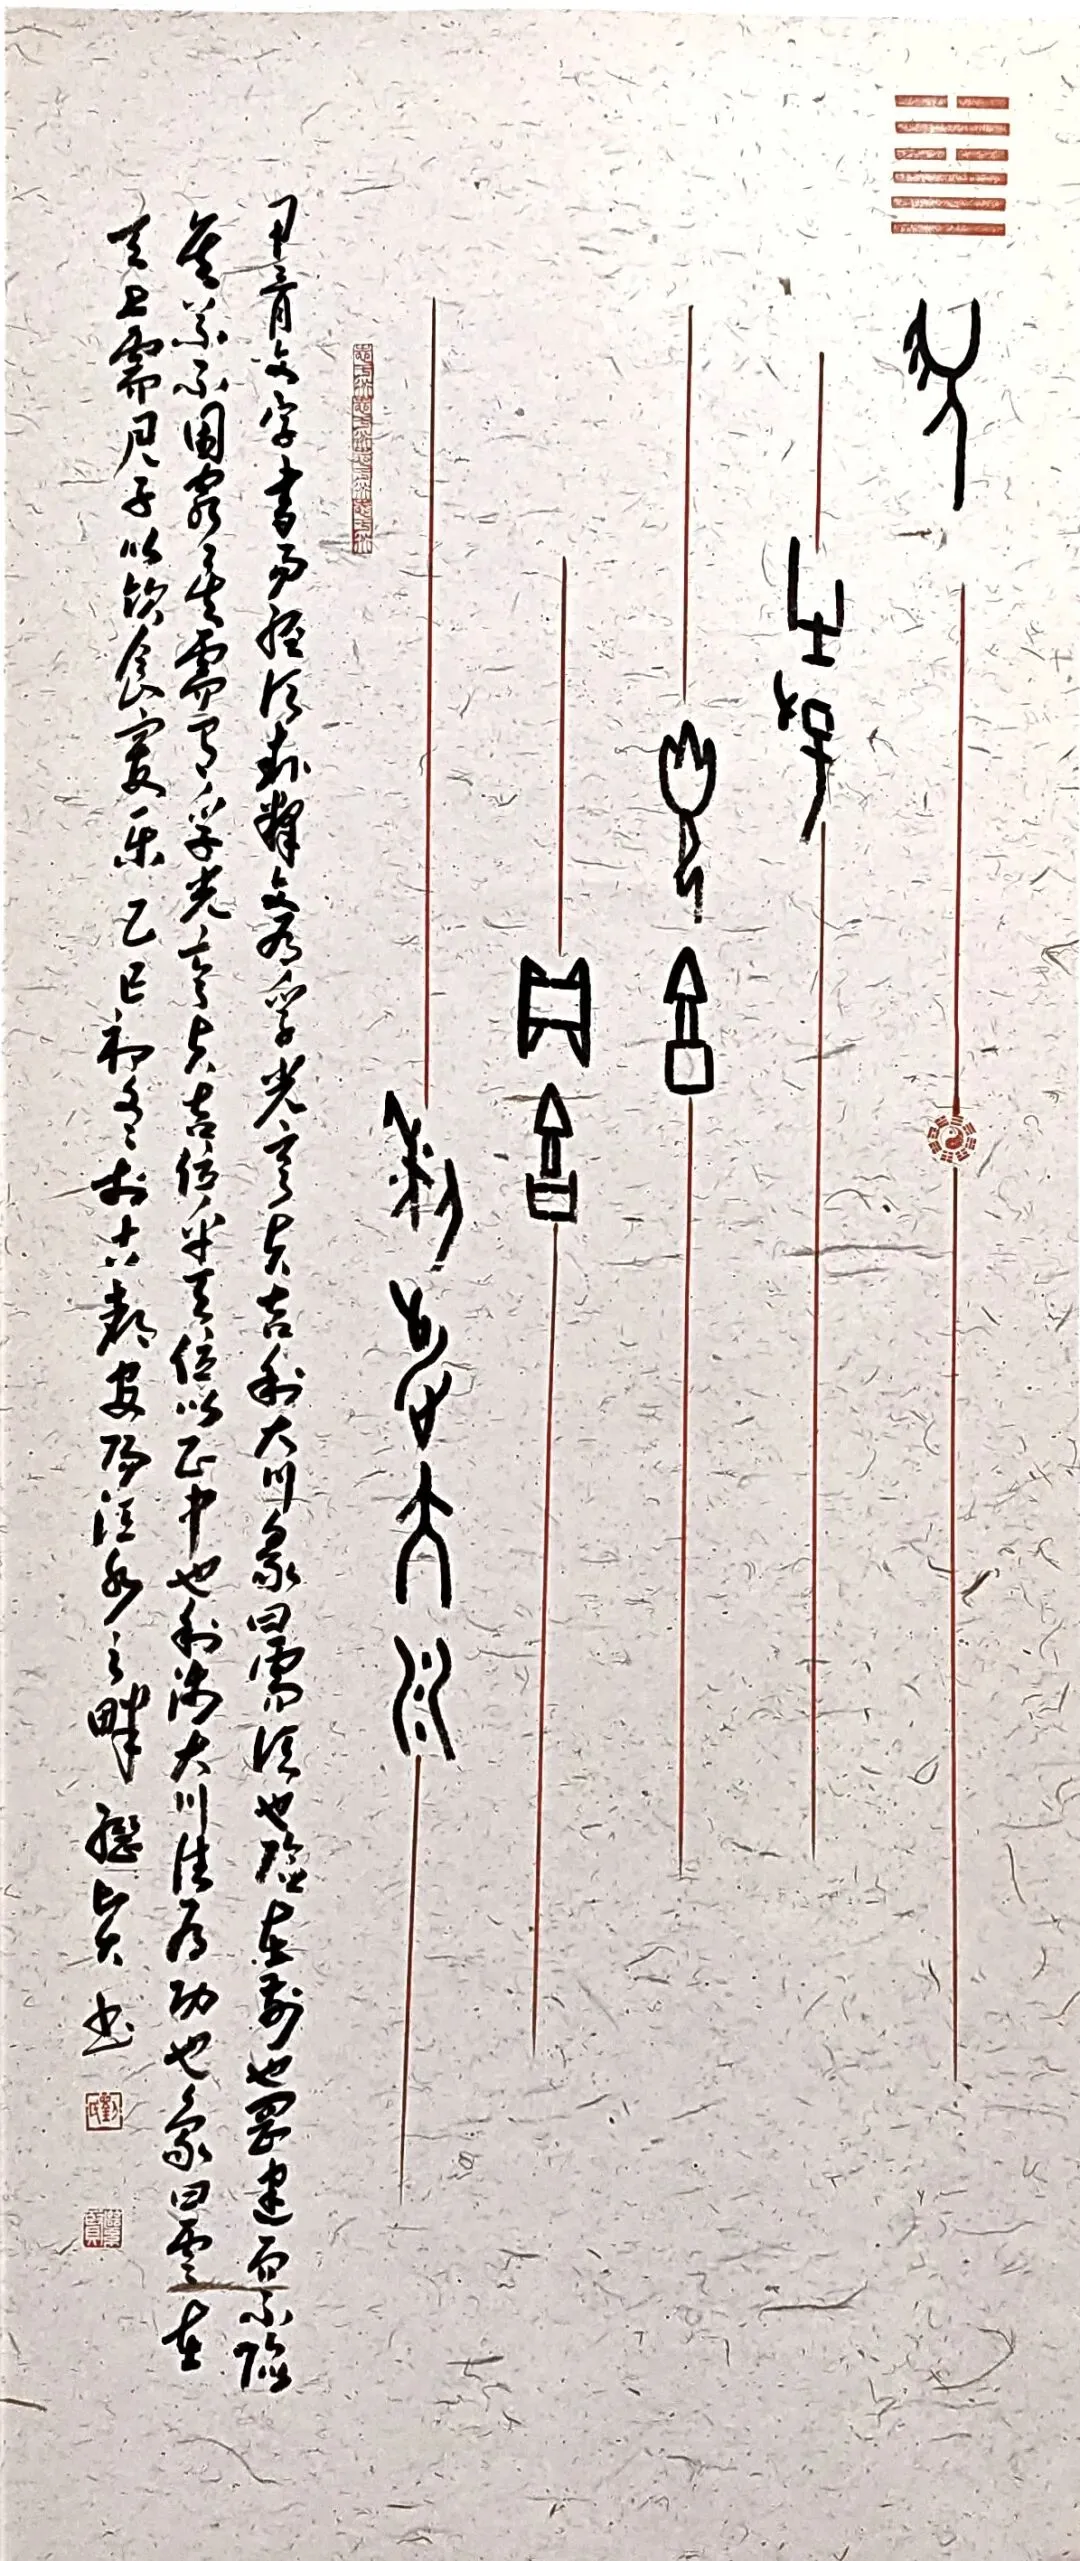 需
有孚
光亨
貞吉
利涉大川
甲骨文字書易經須卦釋文有孚光亨貞吉利大川彖曰需須也險在前也罡建而不陷
其義不困窮矣需有孚光亨貞吉位乎天位以正中也利涉大川往有功也象曰雲在
天上需君子以飲食宴乐乙巳初冬於古都安陽洹水之畔繼賢书
劉氏